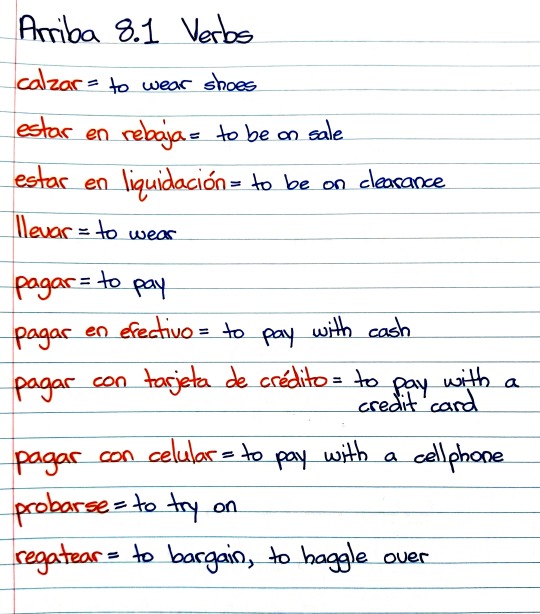 Arriba 8.1 Verbs
calzar = to wear shoes
estar en rebaja = to be on sale
estar en liquidación = to be on clearance
llevar = to wear
pagar = to pay
pagar en efectivo = to pay with cash
pagar con tarjeta de crédito = to pay with a
credit card
pagar con celular = to pay with a cellphone
probarse = to try on
regatear = to bargain, to haggle over